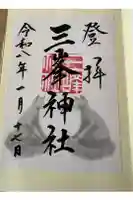 登拝
三峯神社
令和八年一月